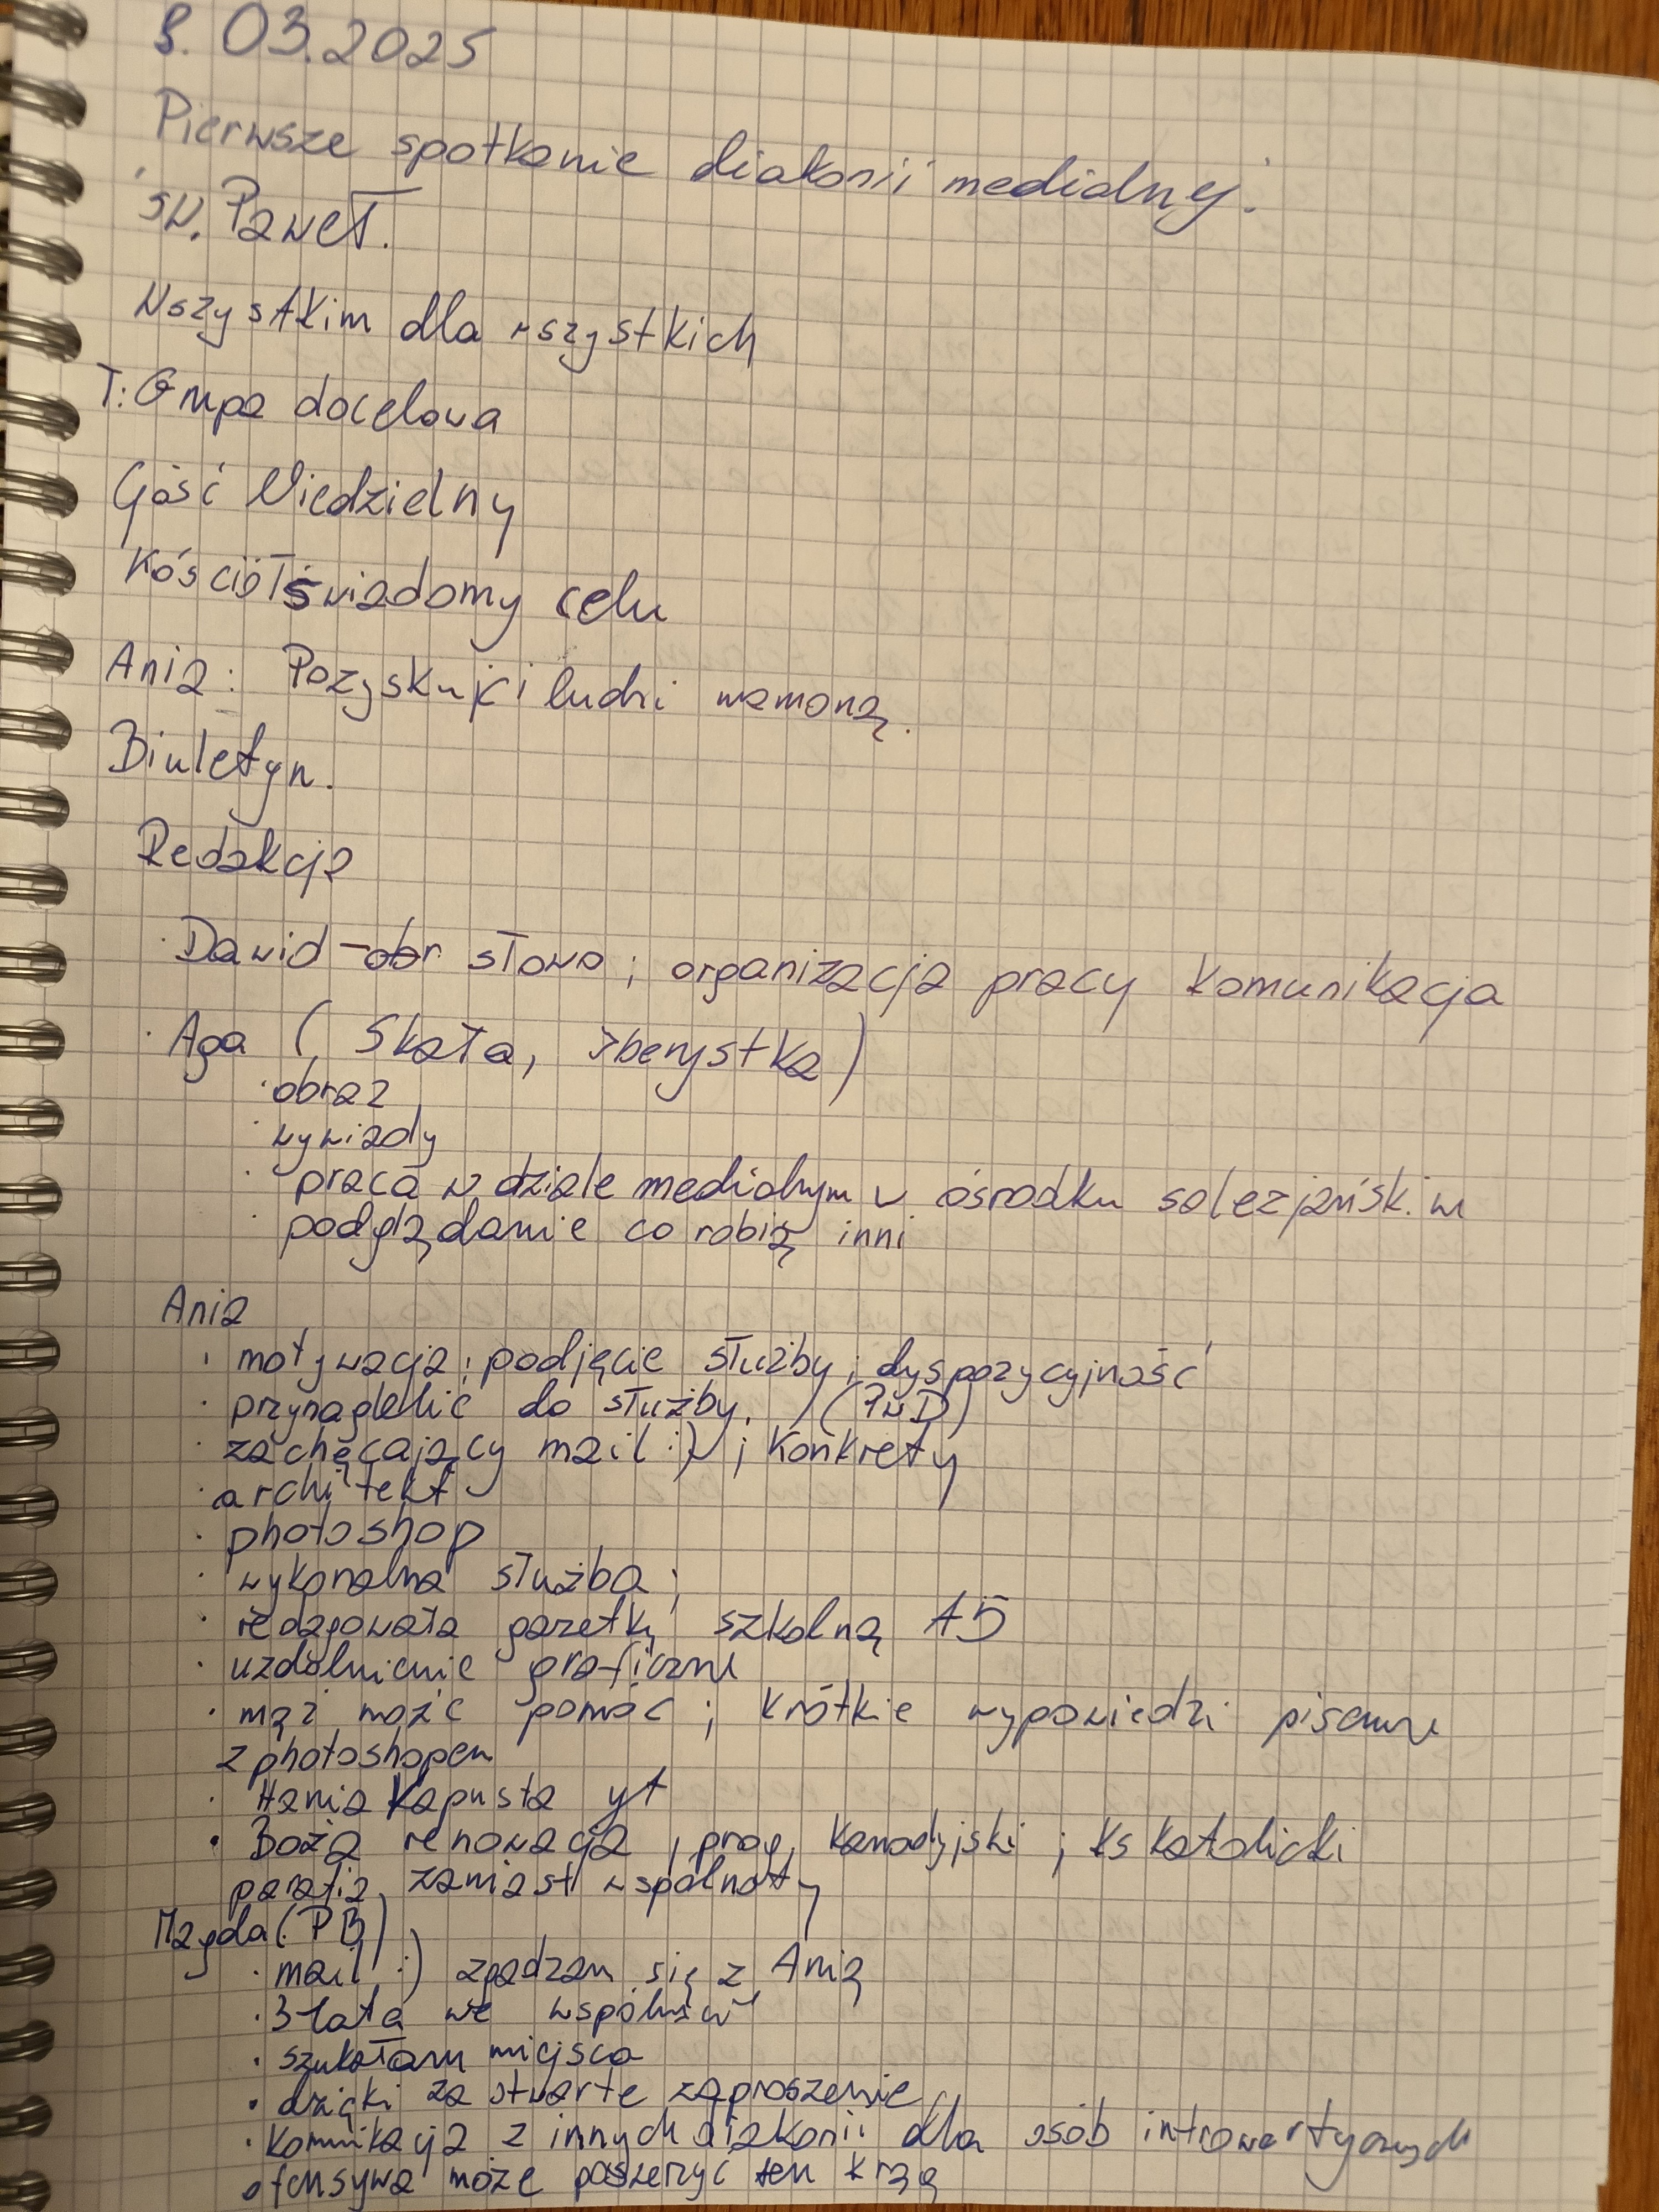 8.03.2025
Pierwsze spotkanie diakonii medialnej.
św. Paweł.
Wszystkim dla wszystkich
T: Grupa docelowa
Gość Niedzielny
Kościół świadomy celu
Ania: Pozyskujci ludzi mamoną.
Biuletyn.
Redakcja
· Dawid - obr słowo; organizacja pracy komunikacja
· Aga (Skała, Iberystka)
· obraz
· wywiady
· praca w dziale medialnym w ośrodku salezjańskim
· podglądanie co robią inni
Ania
· motywacja; podjęcie służby; dyspozycyjność
· przynaglenie do służby. (PwD)
· zachęcający mail :) ; konkrety
· architekt
· photoshop
· wykonalna służba;
· redagowała gazetkę szkolną A5
· uzdolnienie graficzne
· mąż może pomóc ; krótkie wypowiedzi pisemne
z photoshopem
· Hania Kapusta yt
· Boża renowacja, prog. kanadyjski ; ks katolicki
parafia zamiast wspólnoty
Magda (PB)
· mail :) zgadzam się z Anią
· 3 lata we wspólnocie
· szukałam miejsca
· dzięki za otwarte zaproszenie
· komunikacja z innych diakonii dla osób introwertycznych
ofensywa może poszerzyć ten krąg